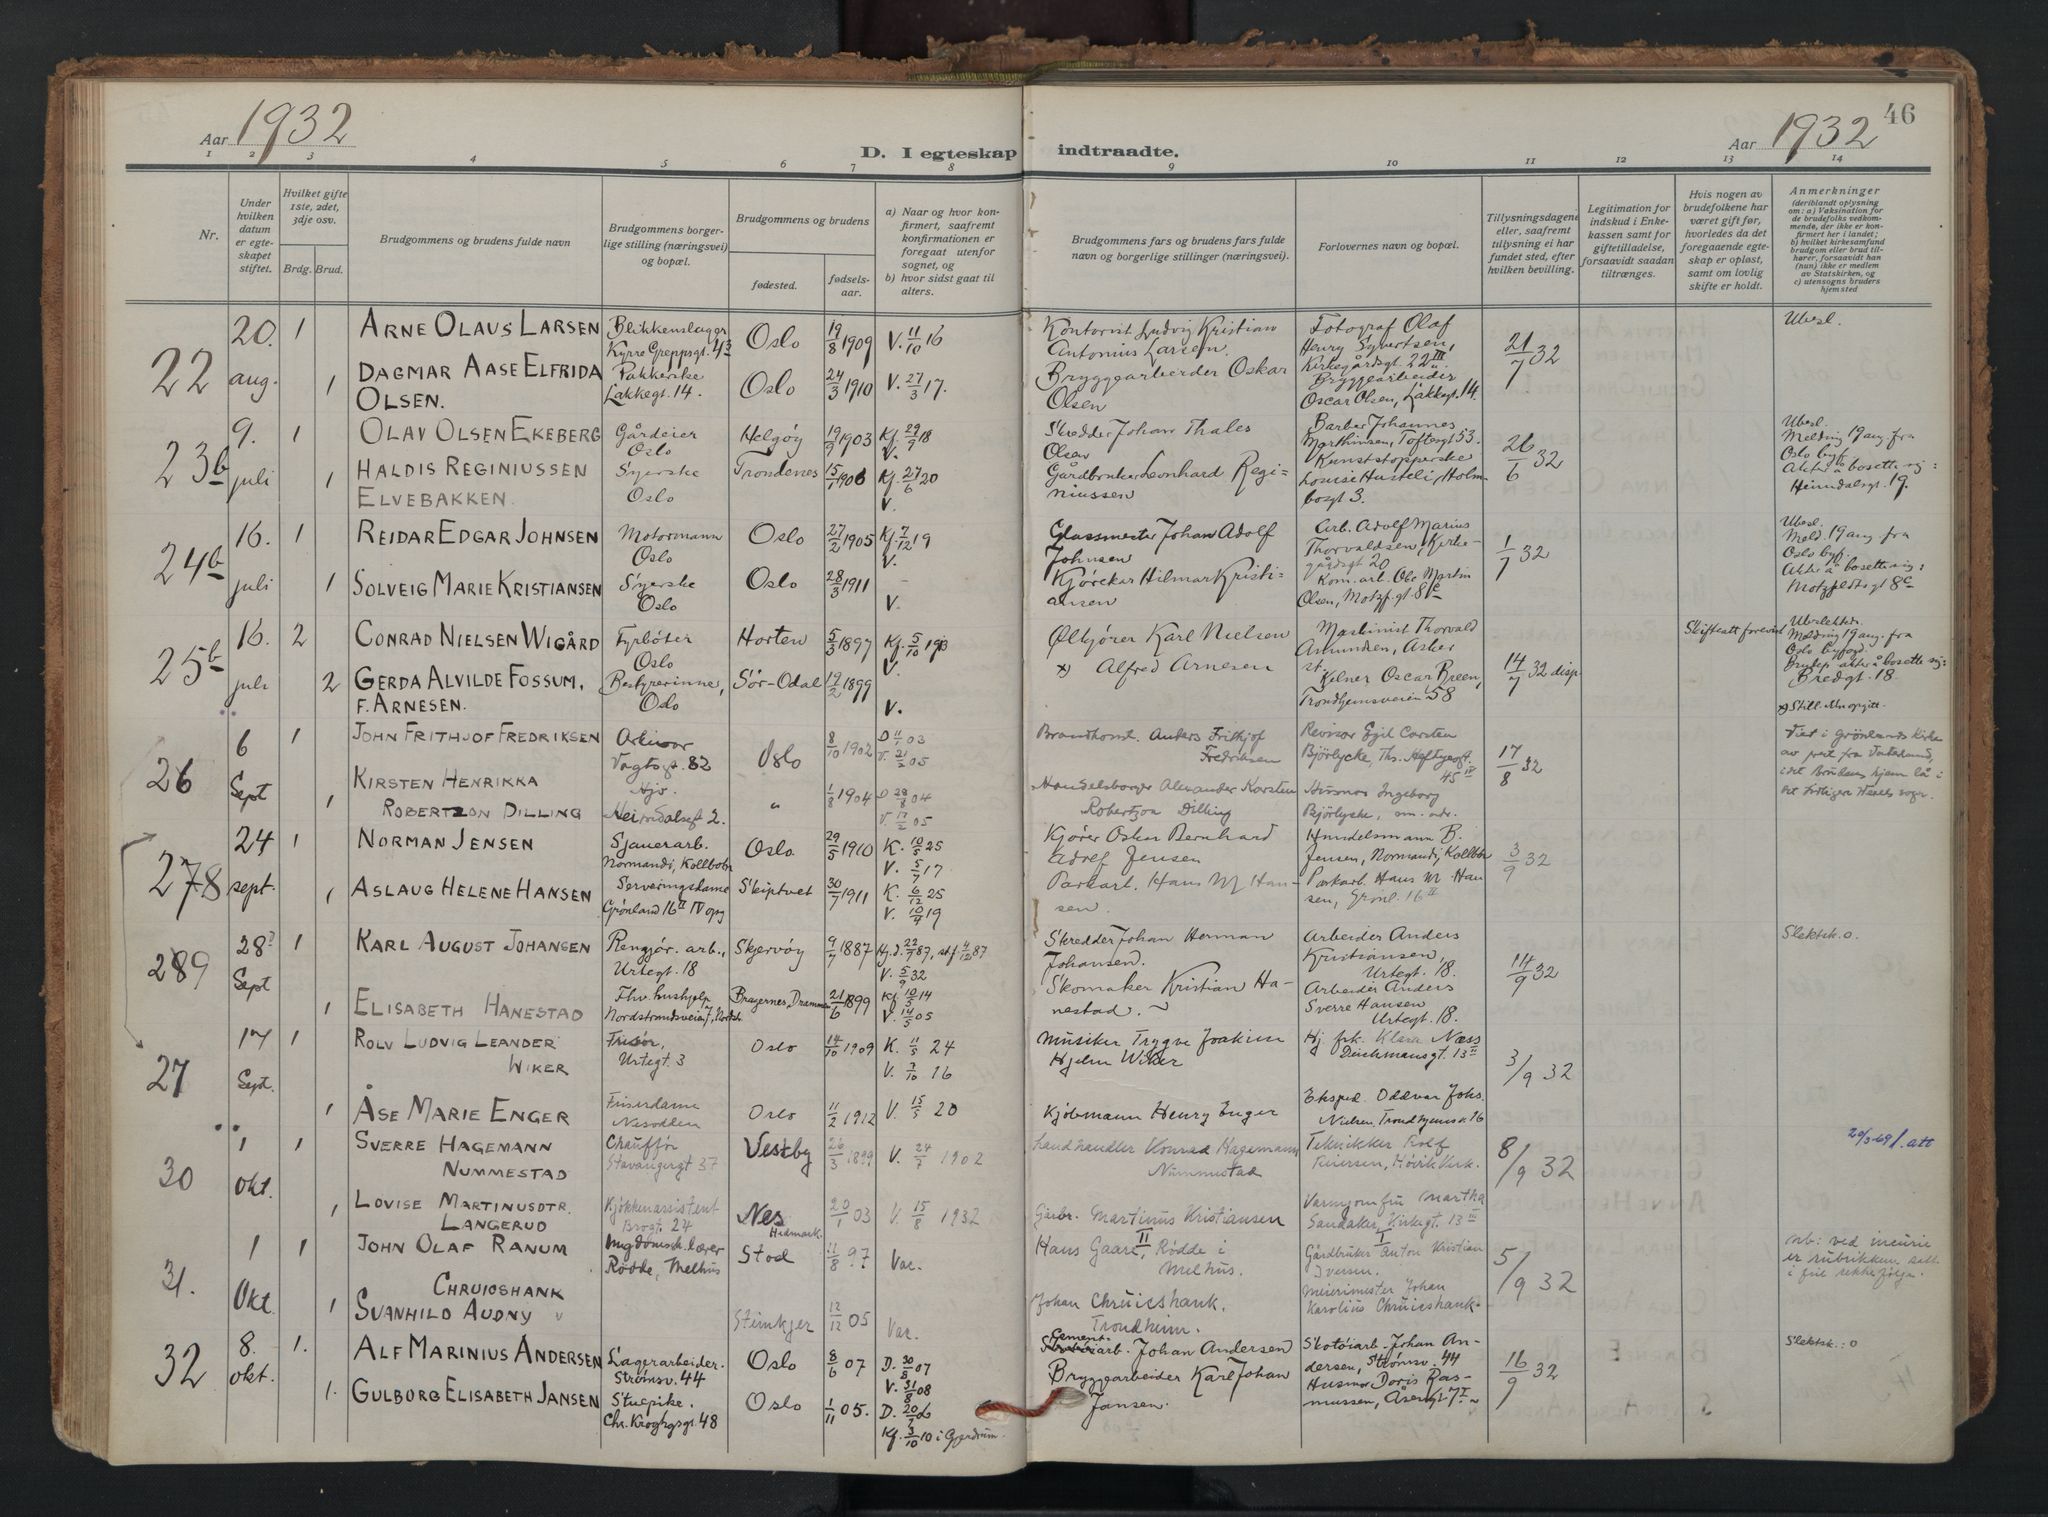 Aar 1932
D. I egteskap indtraadte.
Aar 1932
46
1 2 3 4 5 6 7 8 9 10 11 12 13 14
Nr.
Under hvilken datum er egteskapet stiftet.
Hvilket gifte 1ste, 2det, 3dje osv.
Brdg. Brud.
Brudgommens og brudens fulde navn
Brudgommens borgerlige stilling (næringsvei) og bopæl.
Brudgommens og brudens
fødested.
fødselsaar.
a) Naar og hvor konfirmert, saafremt konfirmationen er foregaat utenfor sognet, og
b) hvor sidst gaat til alters.
Brudgommens fars og brudens fars fulde navn og borgerlige stillinger (næringsvei).
Forlovernes navn og bopæl.
Tillysningsdagene eller, saafremt tillysning ei har fundet sted, efter hvilken bevilling.
Legitimation for indskud i Enkekassen samt for giftetilladelse, forsaavidt saadan tiltrænges.
Hvis nogen av brudefolkene har været gift før, hvorledes da det foregaaende egteskap er opløst, samt om lovlig skifte er holdt.
Anmerkninger
(deriblandt oplysning om: a) Vaksination for de brudefolks vedkommende, der ikke er konfirmert her i landet; b) hvilket kirkesamfund brudgom eller brud tilhører, forsaavidt han (hun) ikke er medlem av Statskirken, og c) utensogns bruders hjemsted
22 20. aug. 1 ARNE OLAUS LARSEN Blikkenslager Kyrre Greppsgt. 43 Oslo 19/8 1909 V. 11/10 16 Kontorist Ludvig Kristian Antonius Larsen. Fotograf Olaf Henry Syvertsen, Kirkegårdsgt. 22 III 21/7 32 Ubesl.
1 DAGMAR AASE ELFRIDA OLSEN. Pakkerske Lakkegt. 14. Oslo 24/3 1910 V. 27/3 17. Bryggearbeider Oskar Olsen Bryggearbeider Oscar Olsen, Lakkegt. 14.
23b 9. juli 1 OLAV OLSEN EKEBERG Gårdeier Oslo Helgøy 19/9 1903 Kf. 29/9 18 V. Skredder Johan Thales Olsen Barber Johannes Marthinsen, Toftesgt 53. 26/6 32 Ubesl. Melding 19 aug. fra Oslo byf. Akter å bosette sig: Heimdalsgt. 19.
1 HALDIS REGINIUSSEN ELVEBAKKEN. Syerske Oslo Trondenes 15/1 1906 Kf. 27/6 20 V. Gårdbruker Leonhard Reginiussen Kunststopperske Louise Husteli, Holmbogt 3.
24b 16. juli 1 REIDAR EDGAR JOHNSEN Motormann Oslo Oslo 27/2 1905 Kf. 7/12 19 V. Glassmester Johan Adolf Johnsen Arb. Adolf Marius Thorvaldsen, Kirkegårdsgt 20 1/7 32 Ubesl. Meld. 19 aug. fra Oslo byf. Akter å bosette sig: Motzfeldtsgt 8c
1 SOLVEIG MARIE KRISTIANSEN Syerske Oslo Oslo 28/3 1911 – V. Kjørekar Hilmar Kristiansen Kom. arb. Ole Martin Olsen, Motzf. gt. 8c
25b 16. juli 2 CONRAD NIELSEN WIGÅRD Fyrbøter Oslo Horten 5/3 1897 Kf. 5/10 1913 V. Ølkjører Karl Nielsen Maskinist Thorvald Amundsen, Asker 14/7 32 disp Skifteatt forevist Ubeslektet. Melding 19 aug. fra Oslo byfogd. Brudep. akter å bosette sig: Bredgt. 18.
2 GERDA ALVILDE FOSSUM, F. ARNESEN. Bestyrerinne, Oslo Sør-Odal 19/2 1899 V. x) Alfred Arnesen Kelner Oscar Breen, Trondhjemsveien 58 x) Still. ikke opgitt.
26 6 Sept 1 JOHN FRITHJOF FREDRIKSEN Arkivar Vogtsgt. 82 Oslo 8/10 1902 D 11/1 03 V. 21/2 05 Brandkonst. Anders Frithjof Fredriksen Revisor Egil Carsten Bjørlycke, Th. Heftyesgt. 45 IV 17/8 32 Viet i Grønlands Kirke av prest fra
1 KIRSTEN HENRIKKA ROBERTZON DILLING Hjv. Heimdalsgt 2. " 1/8 1904 D 28/8 04 V. 17/2 05 Handelsborger Alexander Karsten Robertzon Dilling Husmor Ingeborg Bjørlycke, sm. adr.
278 24 sept. 1 NORMAN JENSEN Sjauerarb. Normandi, Kollbotn Oslo 29/5 1910 K. 10/5 25 V. 5/7 17 Kjører Oskar Bernhard Adolf Jensen Handelsmann B. Jensen, Normandi, Kollbotn 3/9 32
1 ASLAUG HELENE HANSEN Serveringsdame Grønland 16 II IV opg Skiptvet 30/7 1911 K. 6/12 25 V. 10/7 19 Parkarb. Hans M Hansen. Parkarb. Hans M. Hansen, Grønl. 16 II
289 28? Sept 1 KARL AUGUST JOHANSEN Rengjør. arb., Urtegt. 18 Skjervøy 9/7 1887 Hj. d. 22/7 87, stf 4/12 87 V. 5/9 32 Skredder Johan Herman Johansen. Arbeider Anders Kristiansen, Urtegt. 18. 14/9 32 Slektsk. o.
1 ELISABETH HANESTAD Fhv. hushjelp Nordstrandsveien 7, Nordstr. Bragernes, Drammen 21/6 1899 Kf. 10/5 14 V. 14/5 05 Skomaker Kristian Hanestad. ~ Arbeider Anders Sverre Hansen Urtegt. 18.
27 17 Sept. 1 ROLV LUDVIG LEANDER WIKER Frisør, Urtegt. 3 Oslo 14/10 1909 K. 11/5 24 V. 7/10 16 Musiker Trygve Joakim Hjelm Wiker Hj. frk. Klara Næss Deichmansgt. 13 II 3/9 32
1 ÅSE MARIE ENGER Friserdame Nesodden Oslo 11/2 1912 V. 15/5 20 Kjøbmann Henry Enger Eksped. Oddvar Johs. Nielsen, Trondhjemsv. 16
30 1 okt. 1 SVERRE HAGEMANN NUMMESTAD Chauffør Stavangergt 37 Vestby 26/3 1899 V. 24/7 1902 Landhandler Konrad Hagemann Nummestad Tekniker Rolf Iversen, Høvik Verk. 8/9 32 20/3-69 1. att
1 LOVISE MARTINUSDTR. LANGERUD Kjøkkenassistent Brogt. 24 Nes Hedmark. 20/1 03 V. 15/8 1932 Gårbr. Martinus Kristiansen Varmjomfru Martha Sandaker, Kirkegt. 13 III
31. 1 Okt. 1 JOHN OLAF RANUM Ungdomsk. lærer Rødde, Melhus Stod 11/8 97 Var. Hans Gaare, Rødde i Melhus. II I Gårdbruker Anton Kristian Iversen. 5/9 32 nb: ved incurie er rubrikkene satt i feil rekkefølge.
1 CHRUICSHANK SVANHILD AUDNY Steinkjer 12/12 05 Var. Johan Chruicshank. Trondheim. Meierimester Johan Karolius Chruicshank.
32 8. okt. 1. ALF MARINIUS ANDERSEN Lagerarbeider. Strømsv. 44 Oslo 8/6 07 D. 30/8 07 V. 31/8 08 Cementarb. Johan Andersen Skotøiarb. Johan Andersen, Strømsv. 44 16/9 32 Slektsk.: 0
1. GULBORG ELISABETH JANSEN Stuepike. Chr. Kroghgsgt. 48 Oslo 1/11 05. D. 20/5 06 Kf. 3/10 10 i Gjerdrum. Bryggearbeider Karl Johan Jansen. Husmor Doris Rasmussen, Åsengt 7 I